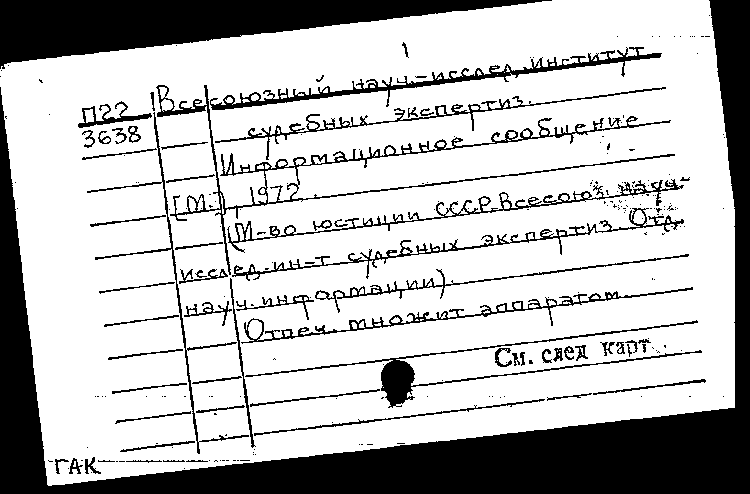 1
П22 Всесоюзный науч.-исслед. институт
3638 судебных экспертиз.
Информационное сообщение
[М.], 1972.
(М-во юстиции СССР. Всесоюз. науч.-
исслед. ин-т судебных экспертиз. Отд.
науч. информации).
Отпеч. множит аппаратом.
См. след карт.
ГАК